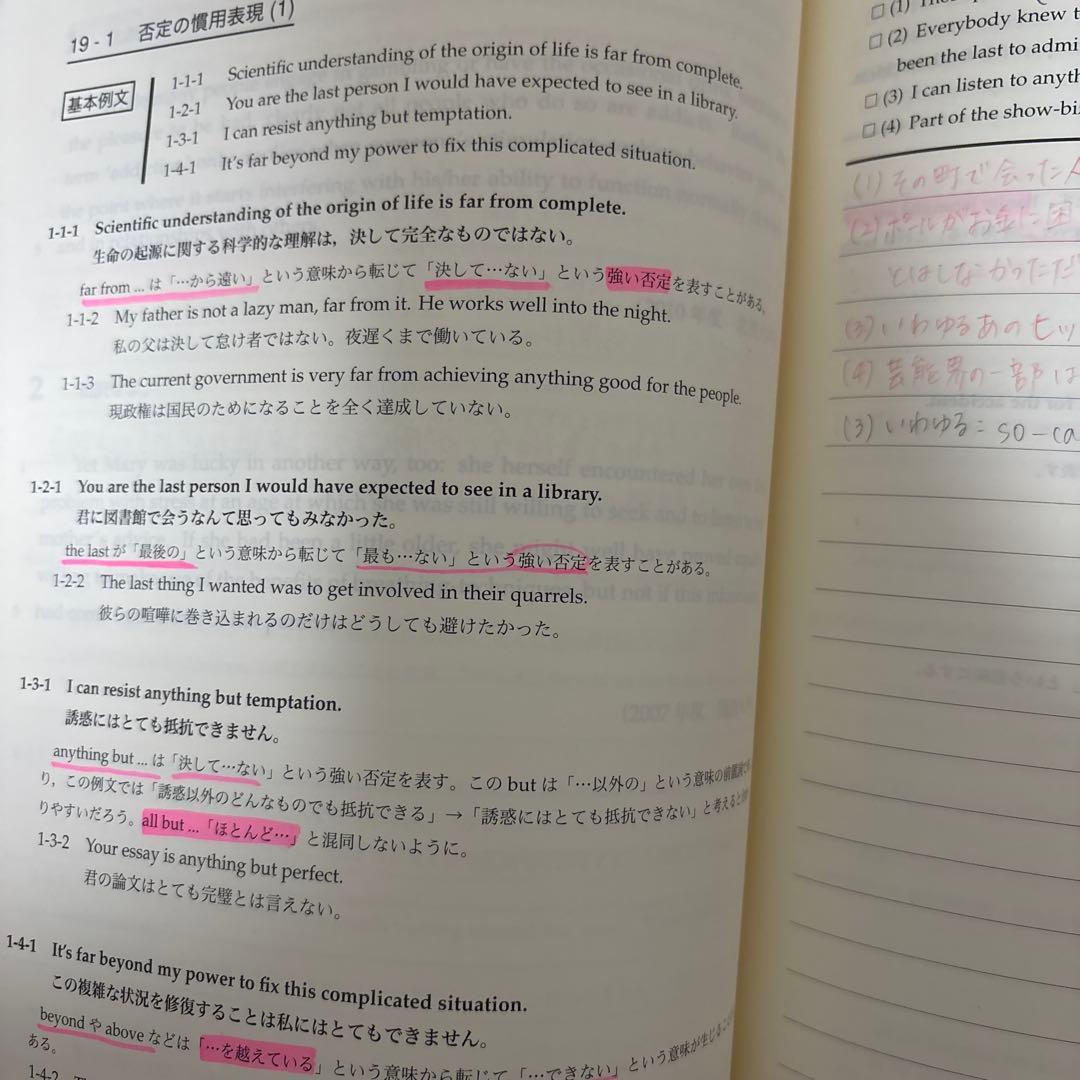 19-1 否定の慣用表現 (1)
基本例文
1-1-1 Scientific understanding of the origin of life is far from complete.
1-2-1 You are the last person I would have expected to see in a library.
1-3-1 I can resist anything but temptation.
1-4-1 It's far beyond my power to fix this complicated situation.
1-1-1 Scientific understanding of the origin of life is far from complete.
生命の起源に関する科学的な理解は，決して完全なものではない。
far from ... は「…から遠い」という意味から転じて「決して…ない」という強い否定を表すことがある。
1-1-2 My father is not a lazy man, far from it. He works well into the night.
私の父は決して怠け者ではない。夜遅くまで働いている。
1-1-3 The current government is very far from achieving anything good for the people.
現政権は国民のためになることを全く達成していない。
1-2-1 You are the last person I would have expected to see in a library.
君に図書館で会うなんて思ってもみなかった。
the last が「最後の」という意味から転じて「最も…ない」という強い否定を表すことがある。
1-2-2 The last thing I wanted was to get involved in their quarrels.
彼らの喧嘩に巻き込まれるのだけはどうしても避けたかった。
1-3-1 I can resist anything but temptation.
誘惑にはとても抵抗できません。
anything but ... は「決して…ない」という強い否定を表す。この but は「…以外の」という意味の前置詞で
り，この例文では「誘惑以外のどんなものでも抵抗できる」→「誘惑にはとても抵抗できない」と考えると
りやすいだろう。all but ...「ほとんど…」と混同しないように。
1-3-2 Your essay is anything but perfect.
君の論文はとても完璧とは言えない。
1-4-1 It's far beyond my power to fix this complicated situation.
この複雑な状況を修復することは私にはとてもできません。
beyond や above などは「…を越えている」という意味から転じて「…できない」という意味が生じる
ある。
1-4-2
(1)
(2) Everybody knew t
been the last to admi
(3) I can listen to anyth
(4) Part of the show-bi
(1) その町で会った人
(2) ポールがお金に困
とはしなかっただ
(3) いわゆるあのヒッ
(4) 芸能界の一部は
(3) いわゆる = so-ca